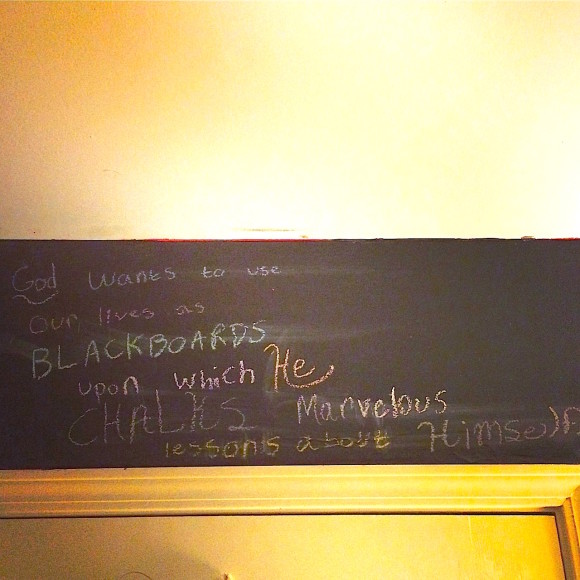 God wants to use
our lives as
BLACKBOARDS
upon which He
CHALKS Marvelous
lessons about Himself